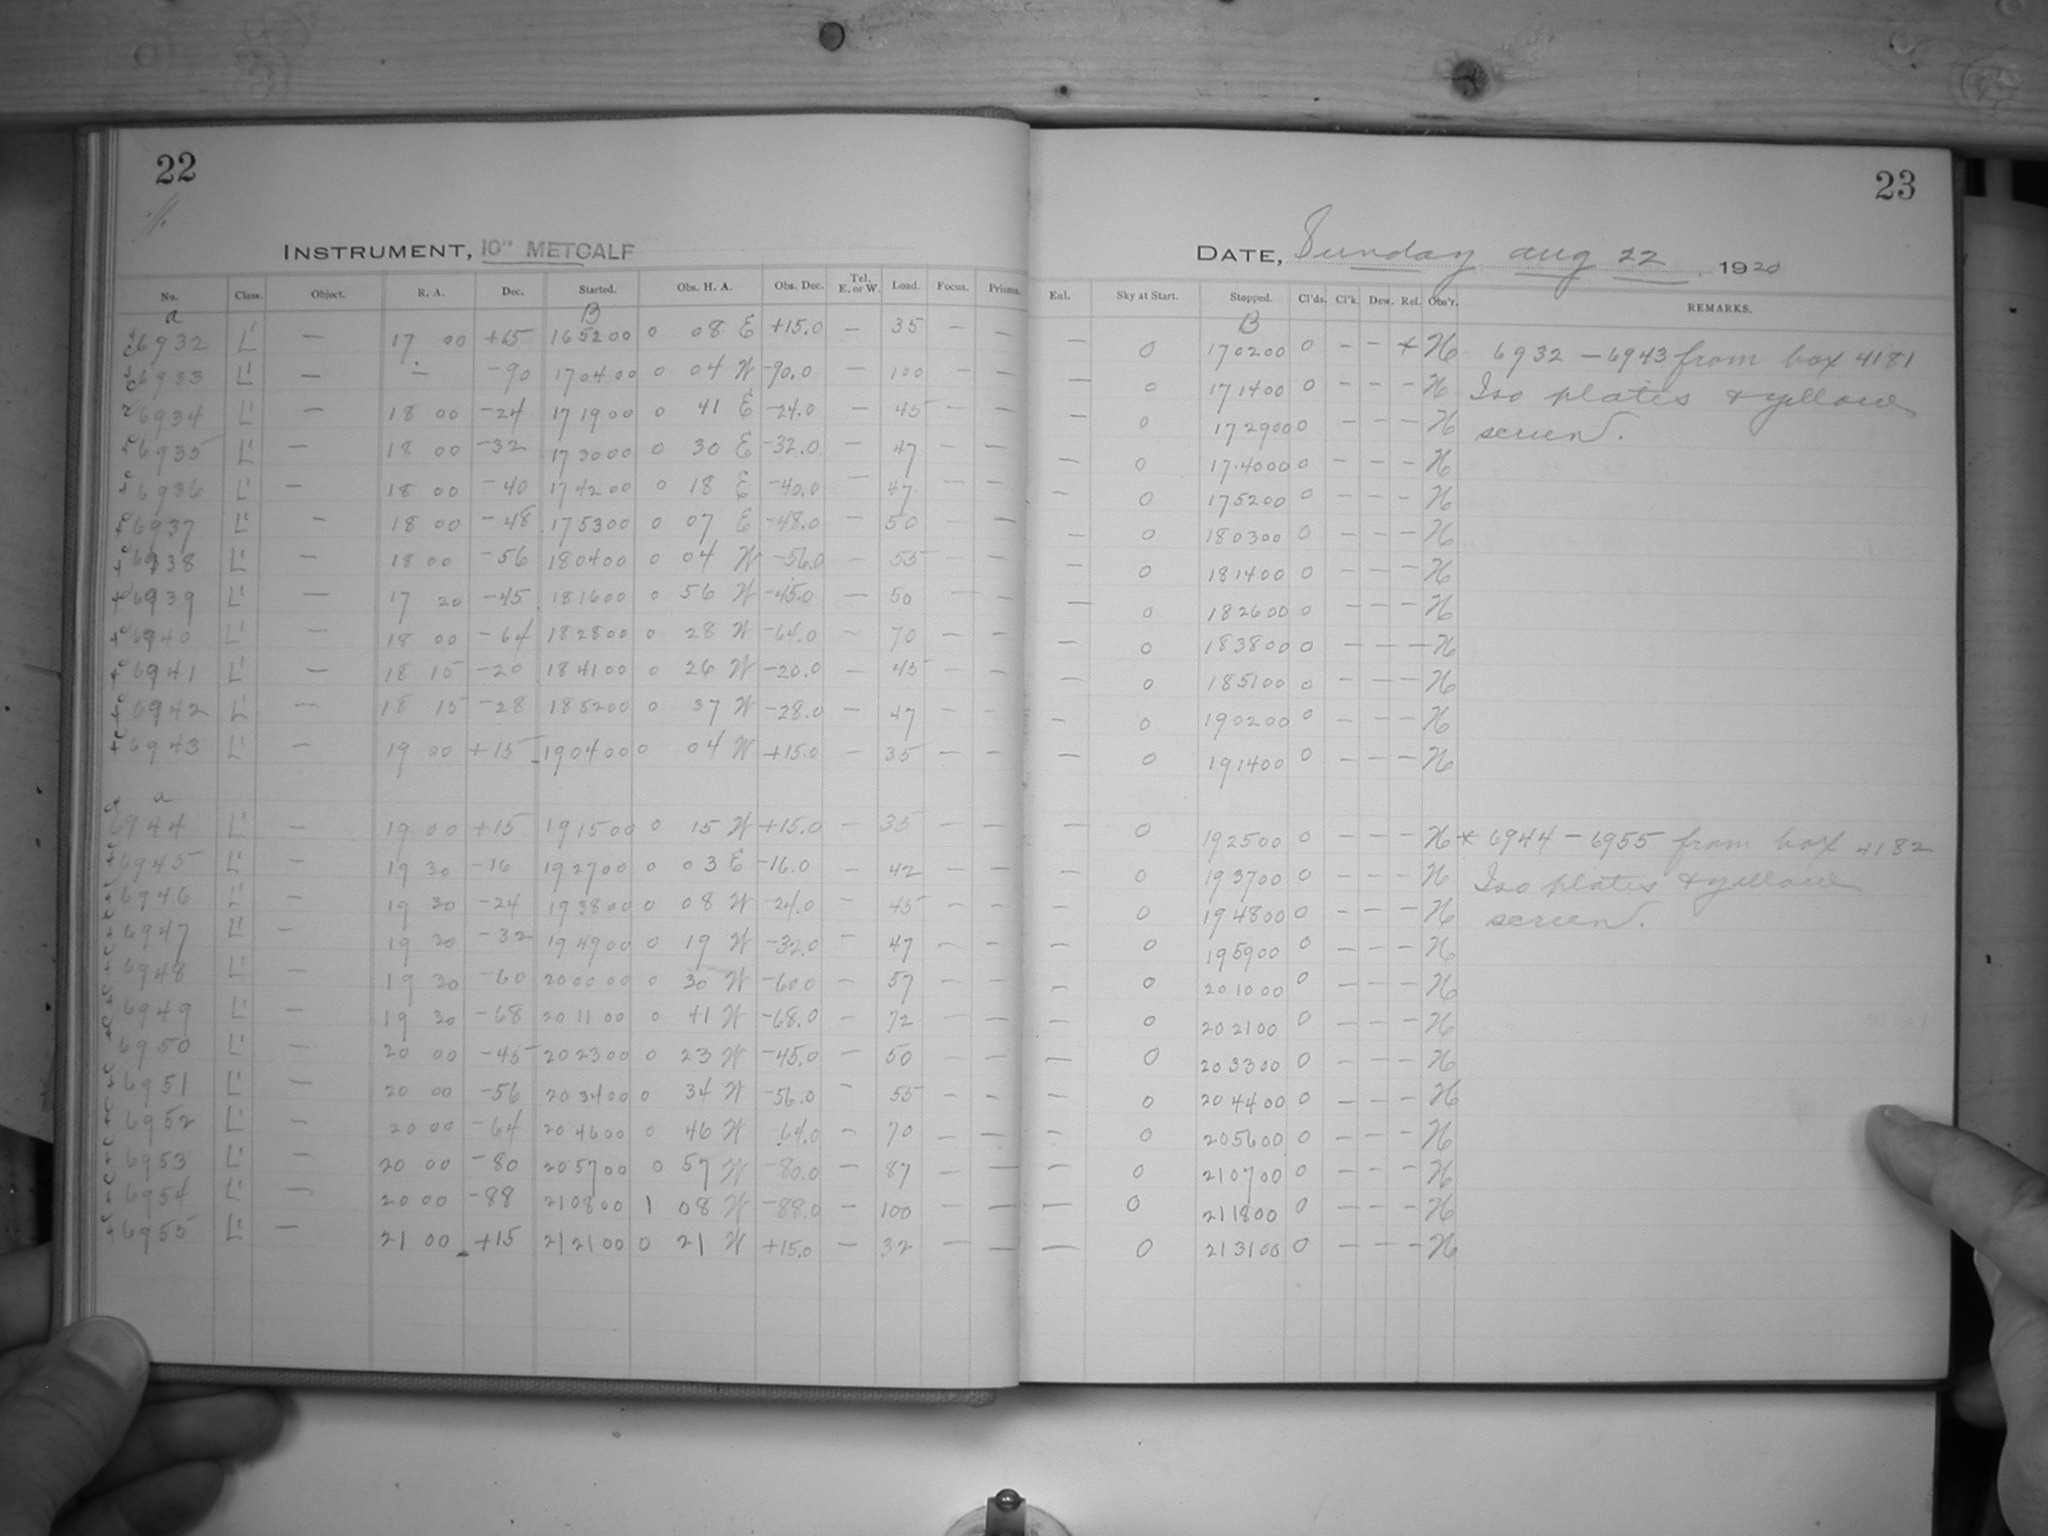 22
INSTRUMENT, 10" METCALF
No. Class. Object. R. A. Dec. Started. Obs. H. A. Obs. Dec. Tel. E. or W. Load. Focus. Prisms.
a B
6932 L' — 17 00 +15 165200 0 08 E +15.0 — 35 — —
6933 L' — — -90 170400 0 04 W -90.0 — 100 — —
6934 L' — 18 00 -24 171900 0 41 E -24.0 — 45 — —
6935 L' — 18 00 -32 173000 0 30 E -32.0 — 47 — —
6936 L' — 18 00 -40 174200 0 18 E -40.0 — 47 — —
6937 L' — 18 00 -48 175300 0 07 E -48.0 — 50 — —
6938 L' — 18 00 -56 180400 0 04 W -56.0 — 55 — —
6939 L' — 17 20 -45 181600 0 56 W -45.0 — 50 — —
6940 L' — 18 00 -64 182800 0 28 W -64.0 — 70 — —
6941 L' — 18 15 -20 184100 0 26 W -20.0 — 45 — —
6942 L' — 18 15 -28 185200 0 37 W -28.0 — 47 — —
6943 L' — 19 00 +15 190400 0 04 W +15.0 — 35 — —
a
6944 L' — 19 00 +15 191500 0 15 W +15.0 — 35 — —
6945 L' — 19 30 -16 192700 0 03 E -16.0 — 42 — —
6946 L' — 19 30 -24 193800 0 08 W -24.0 — 45 — —
6947 L' — 19 30 -32 194900 0 19 W -32.0 — 47 — —
6948 L' — 19 30 -60 200000 0 30 W -60.0 — 57 — —
6949 L' — 19 30 -68 201100 0 41 W -68.0 — 72 — —
6950 L' — 20 00 -45 202300 0 23 W -45.0 — 50 — —
6951 L' — 20 00 -56 203400 0 34 W -56.0 — 55 — —
6952 L' — 20 00 -64 204600 0 46 W -64.0 — 70 — —
6953 L' — 20 00 -80 205700 0 57 W -80.0 — 87 — —
6954 L' — 20 00 -88 210800 1 08 W -88.0 — 100 — —
6955 L' — 21 00 +15 212100 0 21 W +15.0 — 32 — —
23
DATE, Sunday Aug 22 1920
Enl. Sky at Start. Stopped. Cl'ds. Cl'k. Dew. Ref. Obs'r. REMARKS.
B
— 0 170200 0 — — * H 6932 — 6943 from box 4181
— 0 171400 0 — — — H Iso plates & yellow
— 0 172900 0 — — — H screen.
— 0 174000 0 — — — H
— 0 175200 0 — — — H
— 0 180300 0 — — — H
— 0 181400 0 — — — H
— 0 182600 0 — — — H
— 0 183800 0 — — — H
— 0 185100 0 — — — H
— 0 190200 0 — — — H
— 0 191400 0 — — — H
— 0 192500 0 — — — H * 6944 — 6955 from box 4182
— 0 193700 0 — — — H Iso plates & yellow
— 0 194800 0 — — — H screen.
— 0 195900 0 — — — H
— 0 201000 0 — — — H
— 0 202100 0 — — — H
— 0 203300 0 — — — H
— 0 204400 0 — — — H
— 0 205600 0 — — — H
— 0 210700 0 — — — H
— 0 211800 0 — — — H
— 0 213100 0 — — — H